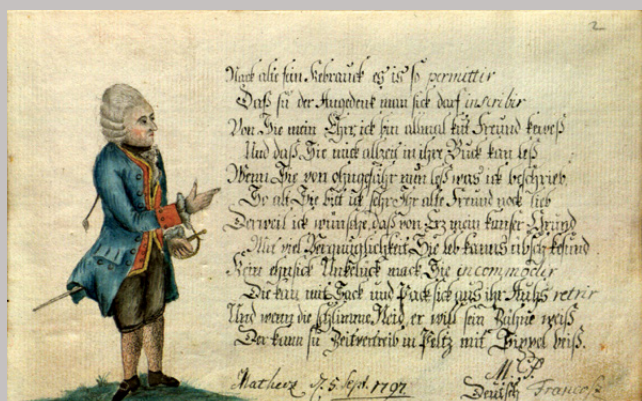 2
Nack alie sein Kebrauck es is so permettir
Daß su der Angedenk man sick darf inscribir
Von Sie mein Ehr, ick bin allmal kut Freund keweß
Und daß Sie mick allzeit in ihrer Buck kan leß
Wenn Sie von ohngefähr nun leß was ick beschrieb,
So alt Sie bitt ick sehr Ihr alte Freund nock lieb
Derweil ick wünsche, daß von Erz mein kanser Grund
Mit viel Vergnüglichkeit Sie leb kanns übsch kesund
Kein ehnsick Unkelück mack Sie incommodir
Die kan mit Sack und Pack sick aus ihr Auhs retrir
Und wenn die schlimme Neid er will sein Zähne weiß
Der kann su Zeitvertreib in Peltz mit Zippel beiß.
5. Sept. 1797
Deutsch Francoß